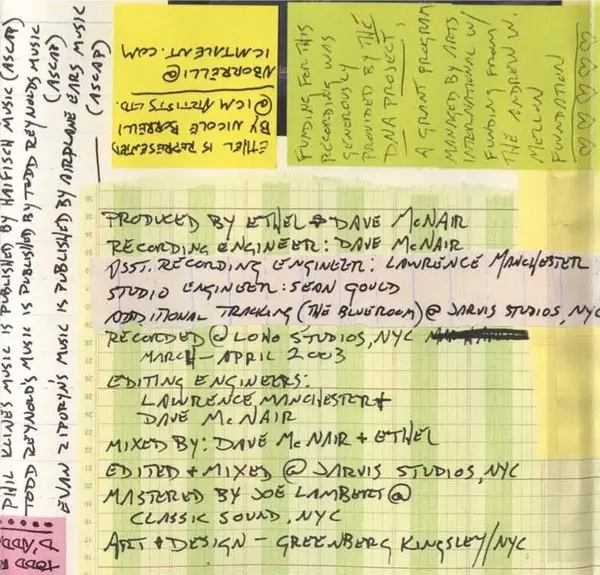 PHIL KLINE'S MUSIC IS PUBLISHED BY HAIFISCH MUSIC (ASCAP)
TODD REYNOLD'S MUSIC IS PUBLISHED BY TODD REYNOLDS MUSIC
(ASCAP)
EVAN ZIPORYN'S MUSIC IS PUBLISHED BY AIRPLANE EARS MUSIC
(ASCAP)
ETHEL IS REPRESENTED
BY NICOLE BORRELLI
@ ICM ARTISTS LTD.
NBORRELLI@
ICMTALENT.COM
FUNDING FOR THIS
RECORDING WAS
GENEROUSLY
PROVIDED BY THE
DNA PROJECT,
A GRANT PROGRAM
MANAGED BY ARTS
INTERNATIONAL W/
FUNDING FROM
THE ANDREW W.
MELLON
FOUNDATION
PRODUCED BY ETHEL + DAVE McNAIR
RECORDING ENGINEER: DAVE McNAIR
ASST. RECORDING ENGINEER: LAWRENCE MANCHESTER
STUDIO ENGINEER: SEAN GOULD
ADDITIONAL TRACKING (THE BLUEROOM) @ JARVIS STUDIOS, NYC
RECORDED @ LOHO STUDIOS, NYC
MARCH - APRIL 2003
EDITING ENGINEERS:
LAWRENCE MANCHESTER +
DAVE McNAIR
MIXED BY: DAVE McNAIR + ETHEL
EDITED + MIXED @ JARVIS STUDIOS, NYC
MASTERED BY JOE LAMBERT @
CLASSIC SOUND, NYC
ART + DESIGN - GREENBERG KINGSLEY//NYC
TODD
D'ADD